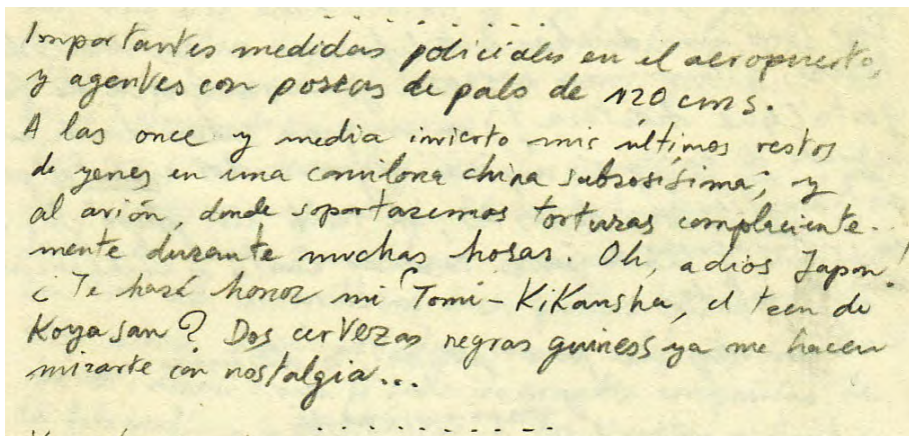 Importantes medidas policiales en el aeropuerto,
y agentes con porras de palo de 120 cms.
A las once y media invierto mis últimos restos
de yenes en una comilona china sabrosísima, y
al avión, donde soportaremos torturas complaciente-
mente durante muchas horas. Oh, adios Japon!
¿Te hará honor mi "Tomi-KiKansha, el tren de
Koyasan? Dos cervezas negras guiness ya me hacen
mirarte con nostalgia...